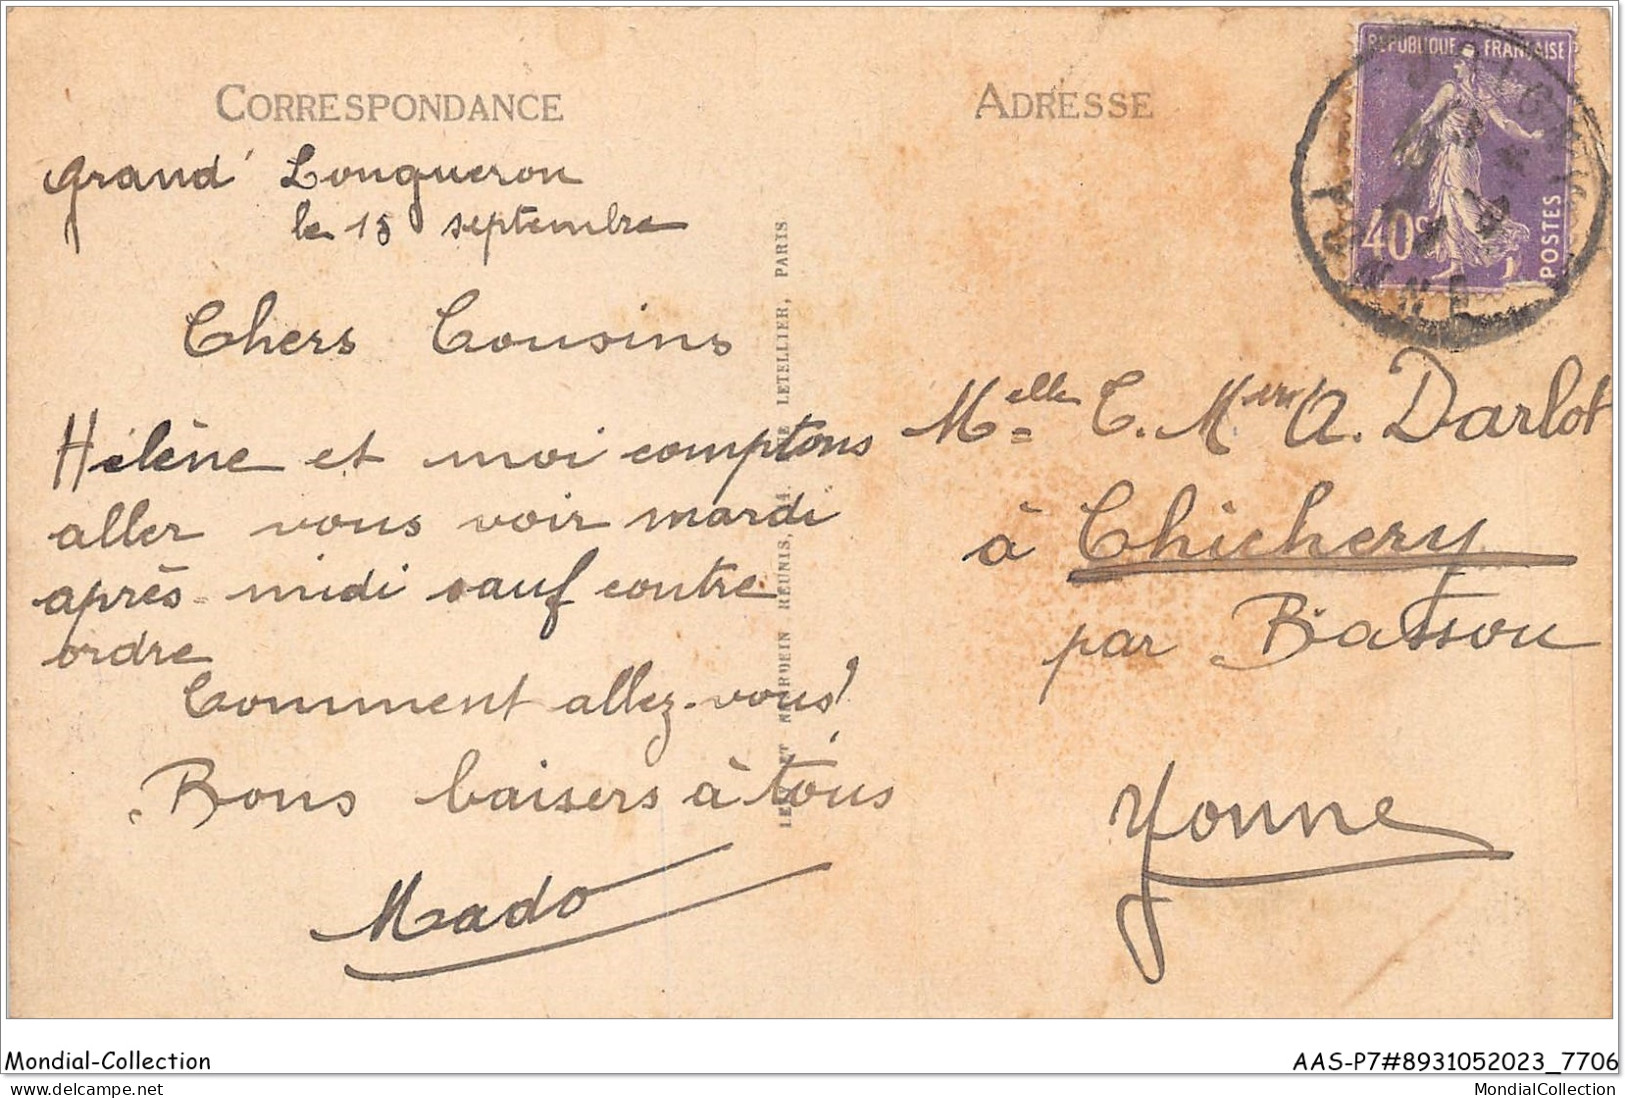 CORRESPONDANCE
Grand Longueron
le 15 septembre
Chers Cousins
Hélène et moi comptons
aller vous voir mardi
après-midi sauf contre
ordre
Comment allez-vous?
Bons baisers à tous
Mado
LEVY ET NEURDEIN REUNIS, 44, RUE LETELLIER, PARIS
ADRESSE
REPUBLIQUE FRANÇAISE
40c
POSTES
Melle C. M A. Darlot
à Chichery
par Bassou
Yonne
Mondial-Collection
AAS-P7#8931052023_7706
© delcampe.net
MondialCollection